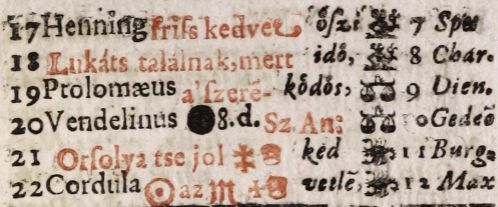 17 Henning friſs kedve őſzi 7 Spes
18 Lukáts találnak, mert idő, 8 Char.
19 Ptolomæus a' ſzerē- kődős, 9 Dien.
20 Vendelinus ● 8. d. Sz. An: 10 Gedeō
21 Orſolya tse jol ked 11 Burg.
22 Cordula ☉ az ♏ vetlē, 12 Max